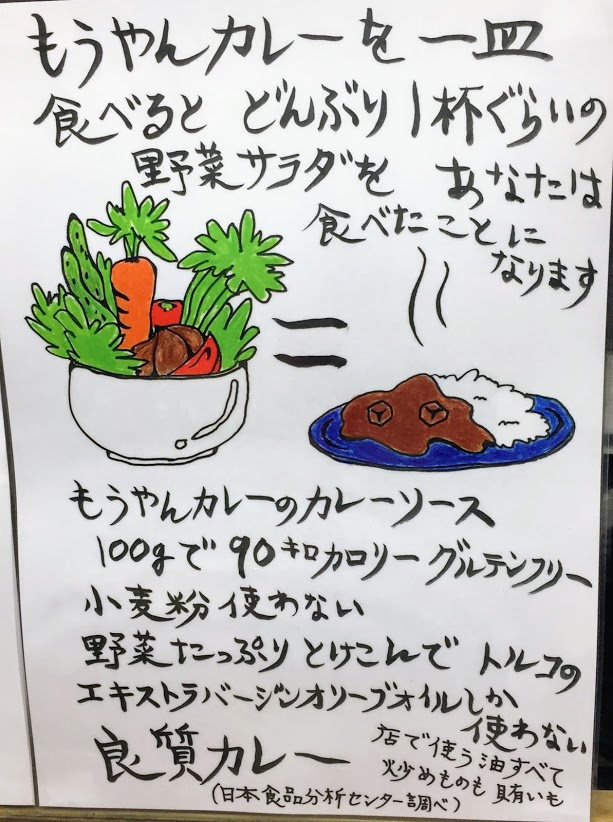 もうやんカレーを一皿
食べると どんぶり1杯ぐらいの
野菜サラダを あなたは
食べたことに
なります
もうやんカレーのカレーソース
100gで90キロカロリー グルテンフリー
小麦粉使わない
野菜たっぷりとけこんで トルコの
エキストラバージンオリーブオイルしか
使わない
良質カレー
店で使う油すべて
炒めものも 賄いも
(日本食品分析センター調べ)